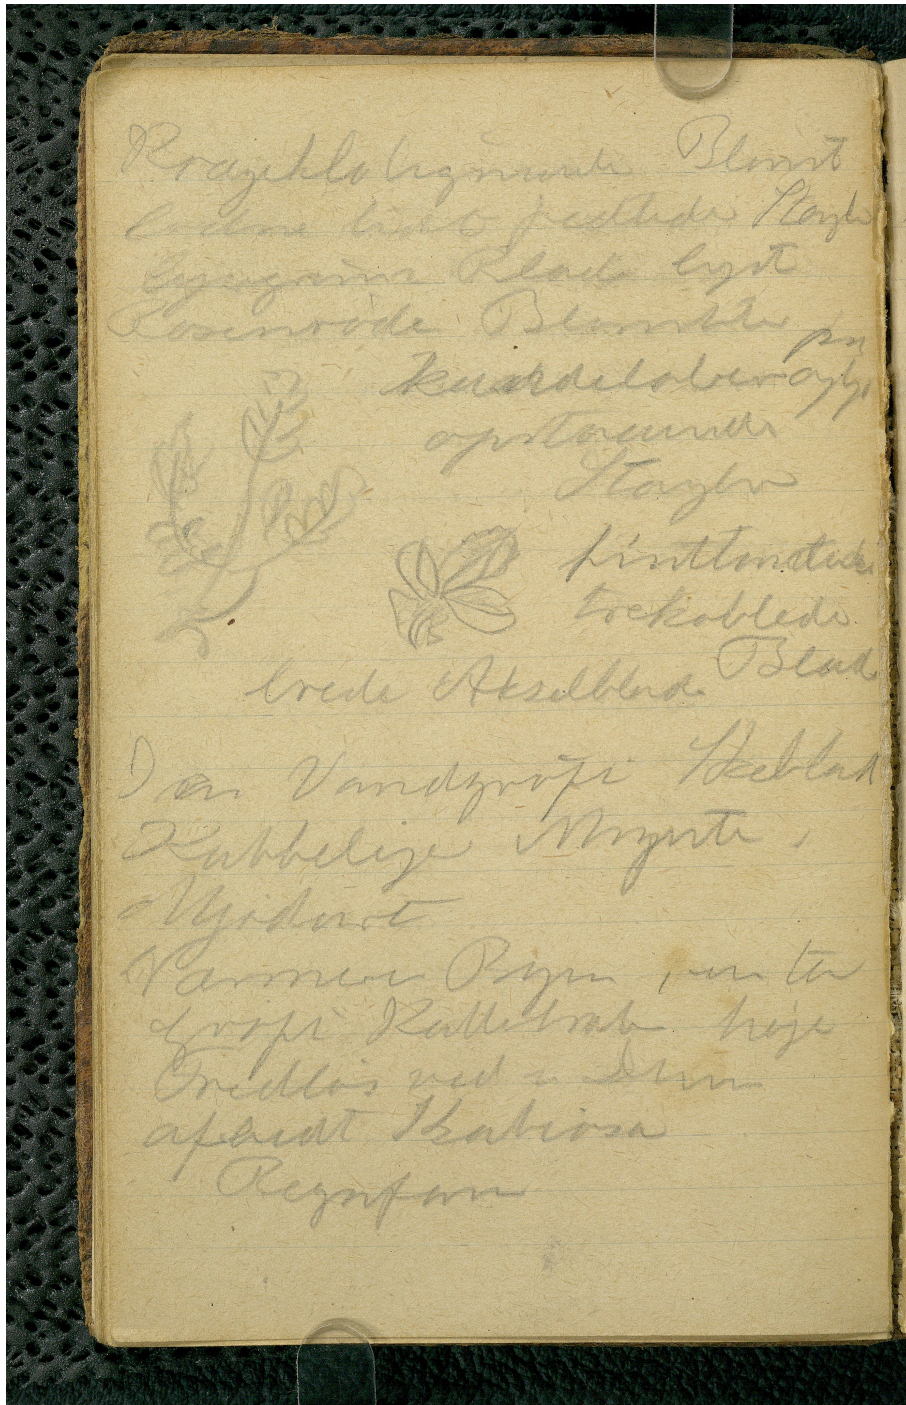 Krageklolignende Blomst
lodne lidt rødlede Stængler
lysegrønne Blade lyst
Rosenrøde Blomster
paa
kandelaberagtigt
opstaaende
Stængler
finttandede
trekoblede
Blade
brede Akselblade
I en Vandgrøft Skeblad
Kabbeleje Mynte,
Mjødurt
Nærmere Byen, en tør
Grøft Katteh høje
Fredløs ved
afbidt Skabiosa
Regnfan